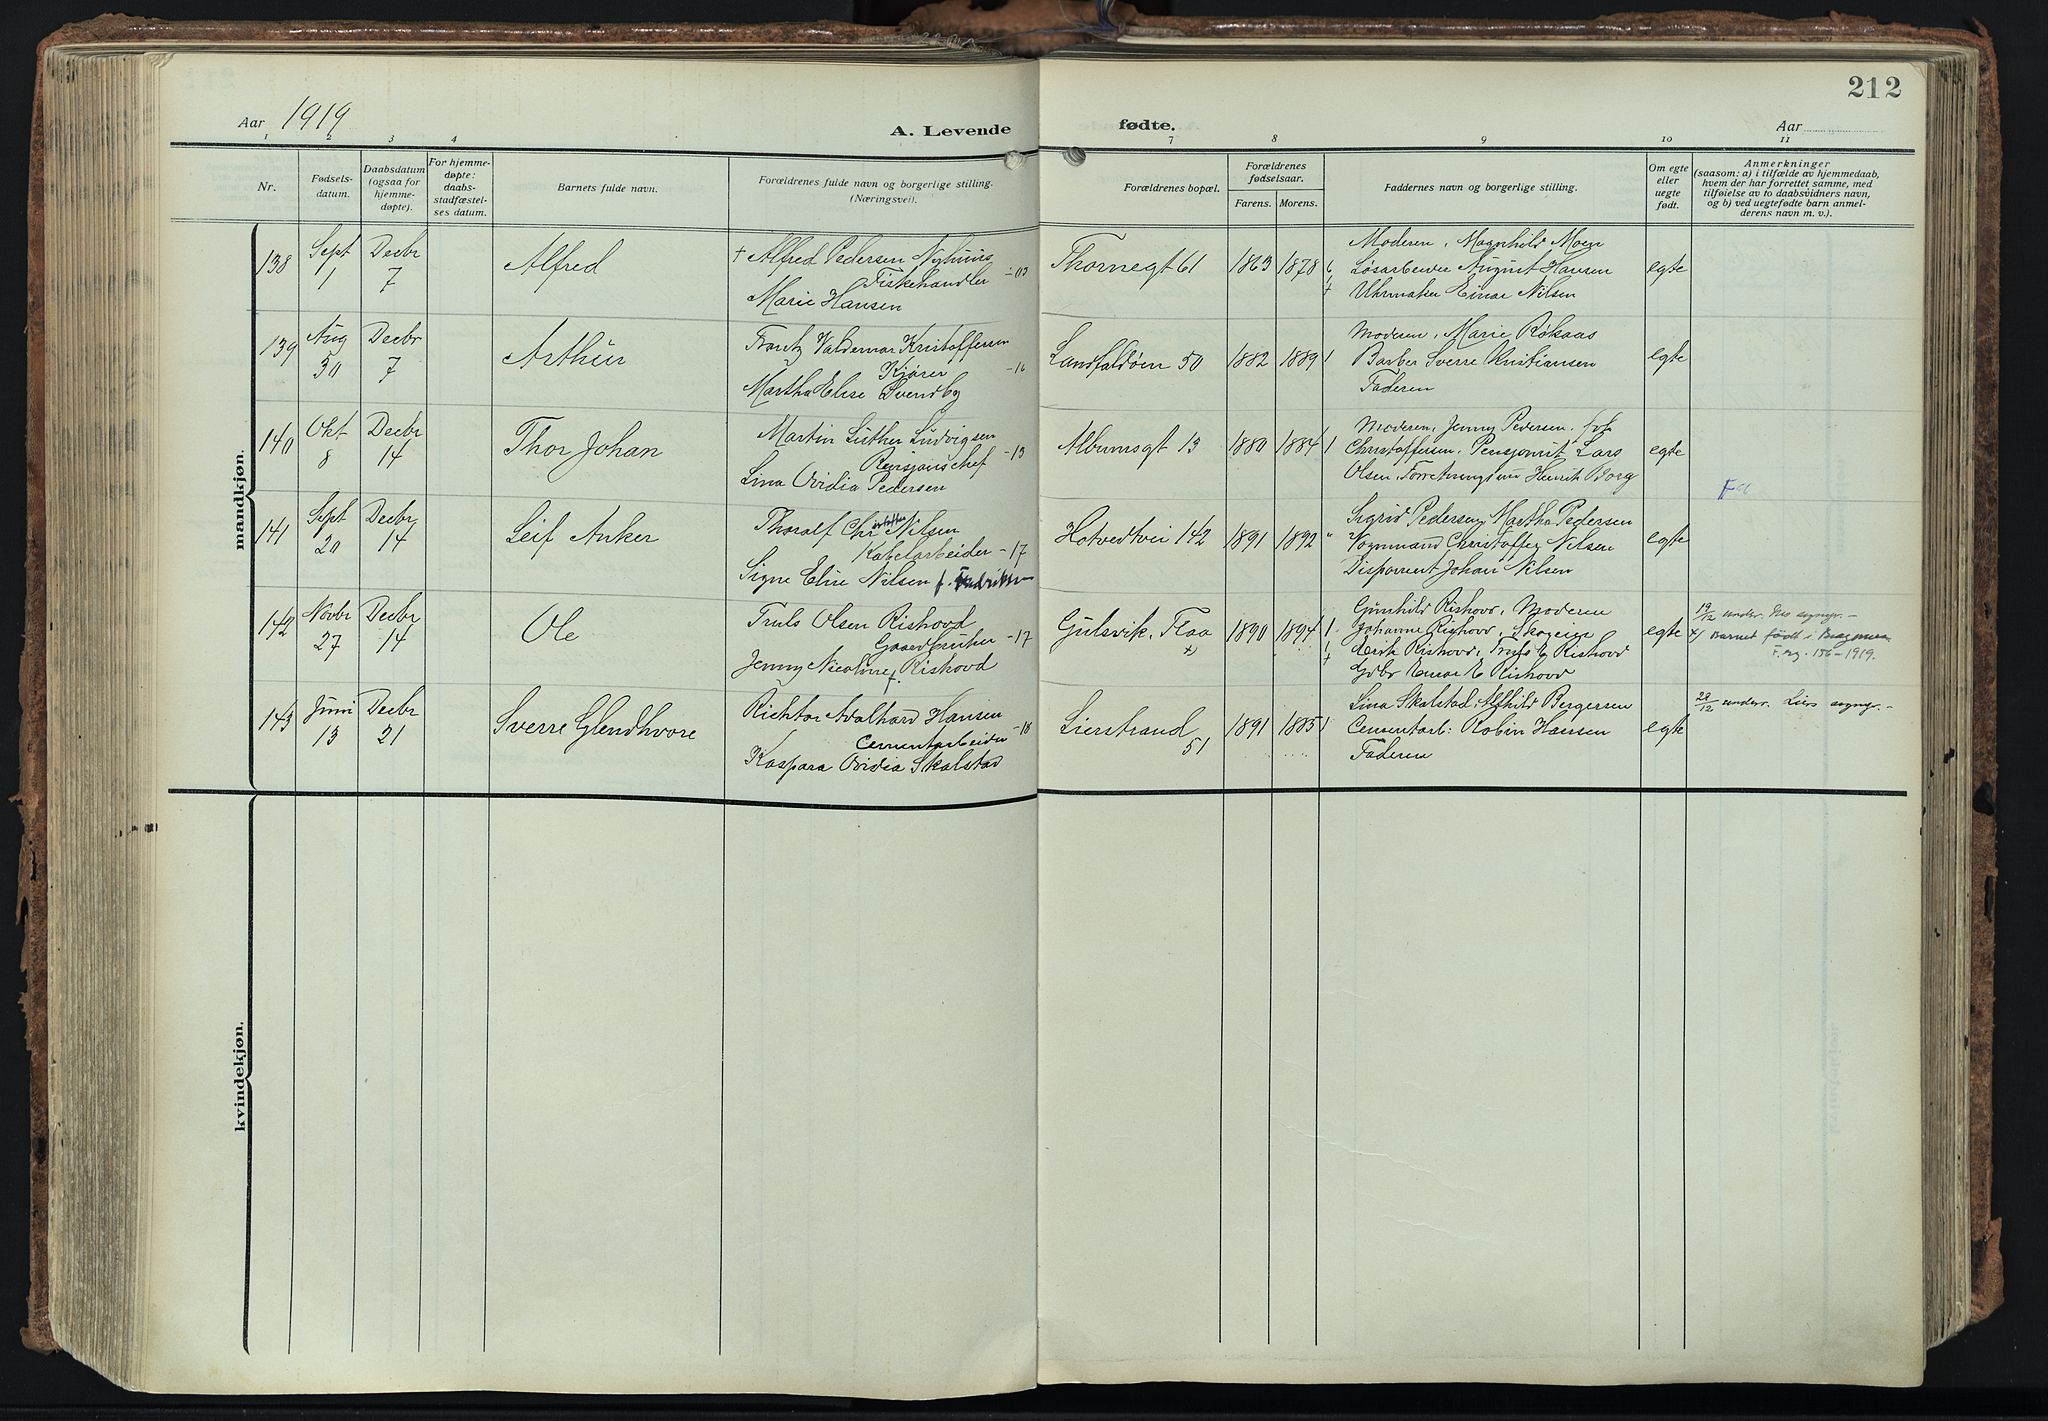 212
Aar 1919
A. Levende
fødte.
Aar
1 2 3 4 7 8 9 10 11
Nr.
Fødsels-
datum.
Daabsdatum
(ogsaa for
hjemme-
døpte).
For hjemme-
døpte:
daabs-
stadfæstel-
ses datum.
Barnets fulde navn.
Forældrenes fulde navn og borgerlige stilling.
(Næringsvei).
Forældrenes bopæl.
Forældrenes
fødselsaar.
Farens. Morens.
Faddernes navn og borgerlige stilling.
Om egte
eller
uegte
født.
Anmerkninger
(saasom: a) i tilfælde av hjemmedaab,
hvem der har forrettet samme, med
tilføielse av to daabsvidners navn,
og b) ved uegtefødte barn anmel-
derens navn m. v.).
mandkjøn.
138
Sept
1
Decbr
7
Alfred
+ Alfred Pedersen Nyhuus
Fiskehandler -03
Marie Hansen
Thornegt 61
1863
1878
Moderen, Magnhild Moen
Løsarbeider August Hansen
Uhrmaker Einar Nilsen
egte
139
Aug
30
Decbr
7
Arthur
Frantz Valdemar Kristoffersen
Kjører -16
Martha Elise Svendby
Landfaldøen 50
1882
1889
Moderen, Marie Røkaas
Barber Sverre Kristiansen
Faderen
egte
140
Okt
8
Decbr
14
Thor Johan
Martin Luther Ludvigsen
Revisjonschef -13
Lina Ovidia Pedersen
Albumsgt 13
1880
1884
Moderen, Jenny Pedersen, frk
Christoffersen, Pensjonist Lars
Olsen, Forretningsm Henrik Borg
egte
141
Sept
20
Decbr
14
Leif Anker
Thoralf Chr istoffer Nilsen
Kabelarbeider -17
Signe Elise Nilsen f. Fredriksen
Hotvedtvei 142
1891
1892
Sigrid Pedersen, Martha Pedersen
Vognmand Christoffer Nilsen
Disponent Johan Nilsen
egte
142
Novbr
27
Decbr
14
Ole
Truls Olsen Rishovd
Gaardbruker -17
Jenny Nicoline f. Rishovd
Gulsvik, Flaa
x)
1890
1894
Gunhild Rishovd, Moderen
Johanne Rishovd, Skogeier
Erik Rishovd, Truls E Rishovd
Gdbr Einar E Rishovd
egte
19/12 underr. Nes sogнpr. -
x) Barnet født i Bragernes
F. rg. 156-1919.
143
Juni
13
Decbr
21
Sverre Glendhvore
Richtor Adalhard Hansen
Cementarbeider -18
Kaspara Ovidia Skalstad
Lierstrand
51
1891
1885
Lina Skalstad, Alfhild Bergersen
Cementarb: Robin Hansen
Faderen
egte
23/12 underr. Liers sognpr. -
kvindekjøn.